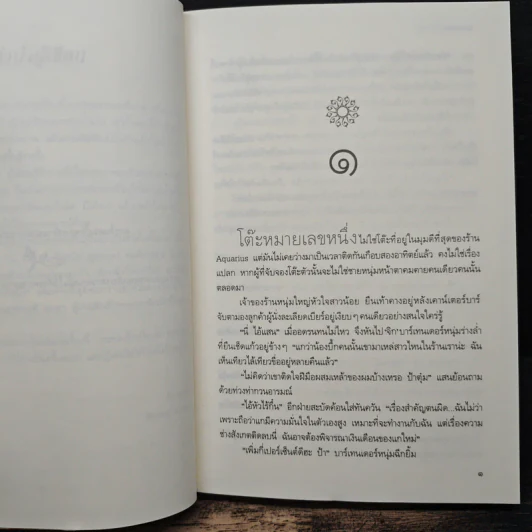 ๑
โต๊ะหมายเลขหนึ่งไม่ใช่โต๊ะที่อยู่ในมุมดีที่สุดของร้าน
Aquarius แต่มันไม่เคยว่างมาเป็นเวลาติดกันเกือบสองอาทิตย์แล้ว คงไม่ใช่เรื่อง
แปลก หากผู้ที่จับจองโต๊ะตัวนั้นจะไม่ใช่ชายหนุ่มหน้าตาคมคายคนเดียวคนนั้น
ตลอดมา
เจ้าของร้านหนุ่มใหญ่หัวใจสาวน้อย ยืนเท้าคางอยู่หลังเคาน์เตอร์บาร์
จับตามองลูกค้าผู้นั่งละเลียดเบียร์อยู่เงียบๆ คนเดียวอย่างสนใจใคร่รู้
"นี่ ไอ้แสน" เมื่ออดรนทนไม่ไหว จึงหันไป'จิก'บาร์เทนเดอร์หนุ่มร่างล่ำ
ที่ยืนเช็ดแก้วอยู่ข้างๆ "แกว่าน้องบึ้กคนนั้นเขามาเหล่สาวไหนในร้านเราน่ะ ฉัน
เห็นเทียวได้เทียวขื่ออยู่หลายคืนแล้ว"
"ไม่คิดว่าเขาติดใจฝีมือผสมเหล้าของผมบ้างเหรอ ป้าตุ่ม" แสนย้อนถาม
ด้วยท่วงท่ากวนอารมณ์
"ไอ้หัวไร้กึ๋น" อีกฝ่ายสะบัดค้อนใส่ทันควัน "เรื่องสำคัญตนผิด...ฉันไม่ว่า
เพราะถือว่าแกมีความมั่นใจในตัวเองสูง เหมาะที่จะทำงานกับฉัน แต่เรื่องความ
ช่างสังเกตติดลบนี่ ฉันอาจต้องพิจารณาเงินเดือนของแกใหม่"
"เพิ่มกี่เปอร์เซ็นต์ดีฮะ ป้า" บาร์เทนเดอร์หนุ่มฉีกยิ้ม